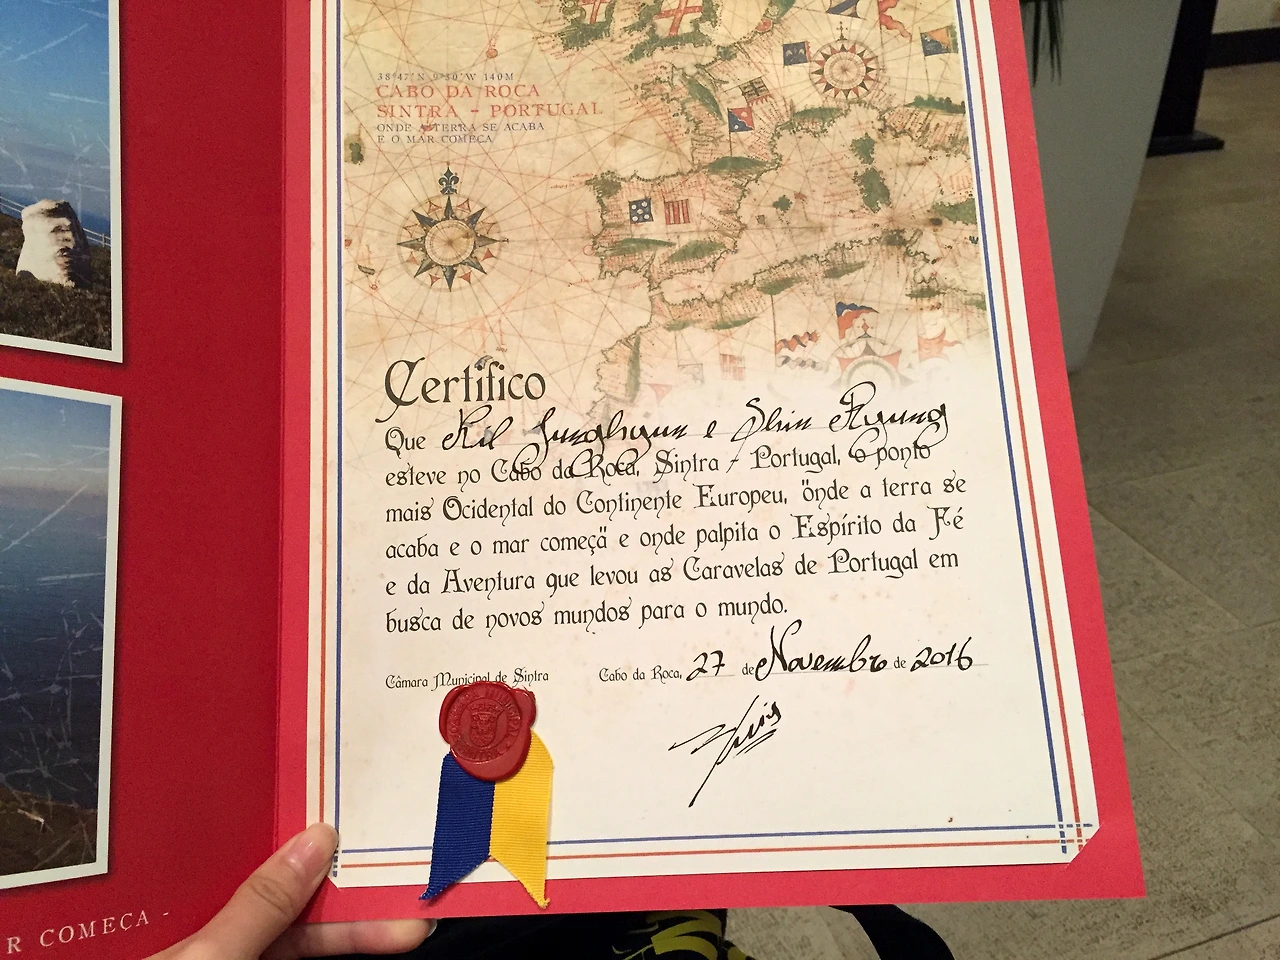 38°47'N 9°30'W 140M
CABO DA ROCA
SINTRA - PORTUGAL
ONDE A TERRA SE ACABA
E O MAR COMEÇA
Certifico
Que Kil Junghyun e Shin Kyung
esteve no Cabo da Roca, Sintra - Portugal, o ponto
mais Ocidental do Continente Europeu, "onde a terra se
acaba e o mar começa" e onde palpita o Espírito da Fé
e da Aventura que levou as Caravelas de Portugal em
busca de novos mundos para o mundo.
Câmara Municipal de Sintra Cabo da Roca, 27 de Novembro de 2016
R COMEÇA -